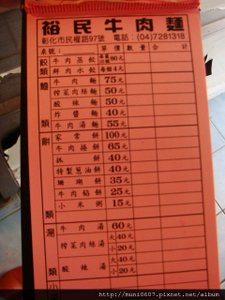 裕民牛肉麵
彰化市民權路97號 電話：(04)7281318
桌號： 單價 數量 合計
餃類
牛肉蒸餃 80元
鮮肉水餃 每個4元
麵類
牛肉麵 75元
榨菜肉絲麵 50元
酸辣麵 50元
炸醬麵 40元
牛肉湯麵 55元
餅類
家常餅 100元
牛肉捲餅 65元
酥餅 40元
特製蔥油餅 40元
珊瑚餅 35元
牛肉餡餅 25元
小米粥 15元
湯類
牛肉湯 60元
榨菜肉絲湯 大40元 小20元
酸辣湯 大40元 小20元
小
http://muni0607.pixnet.net/album